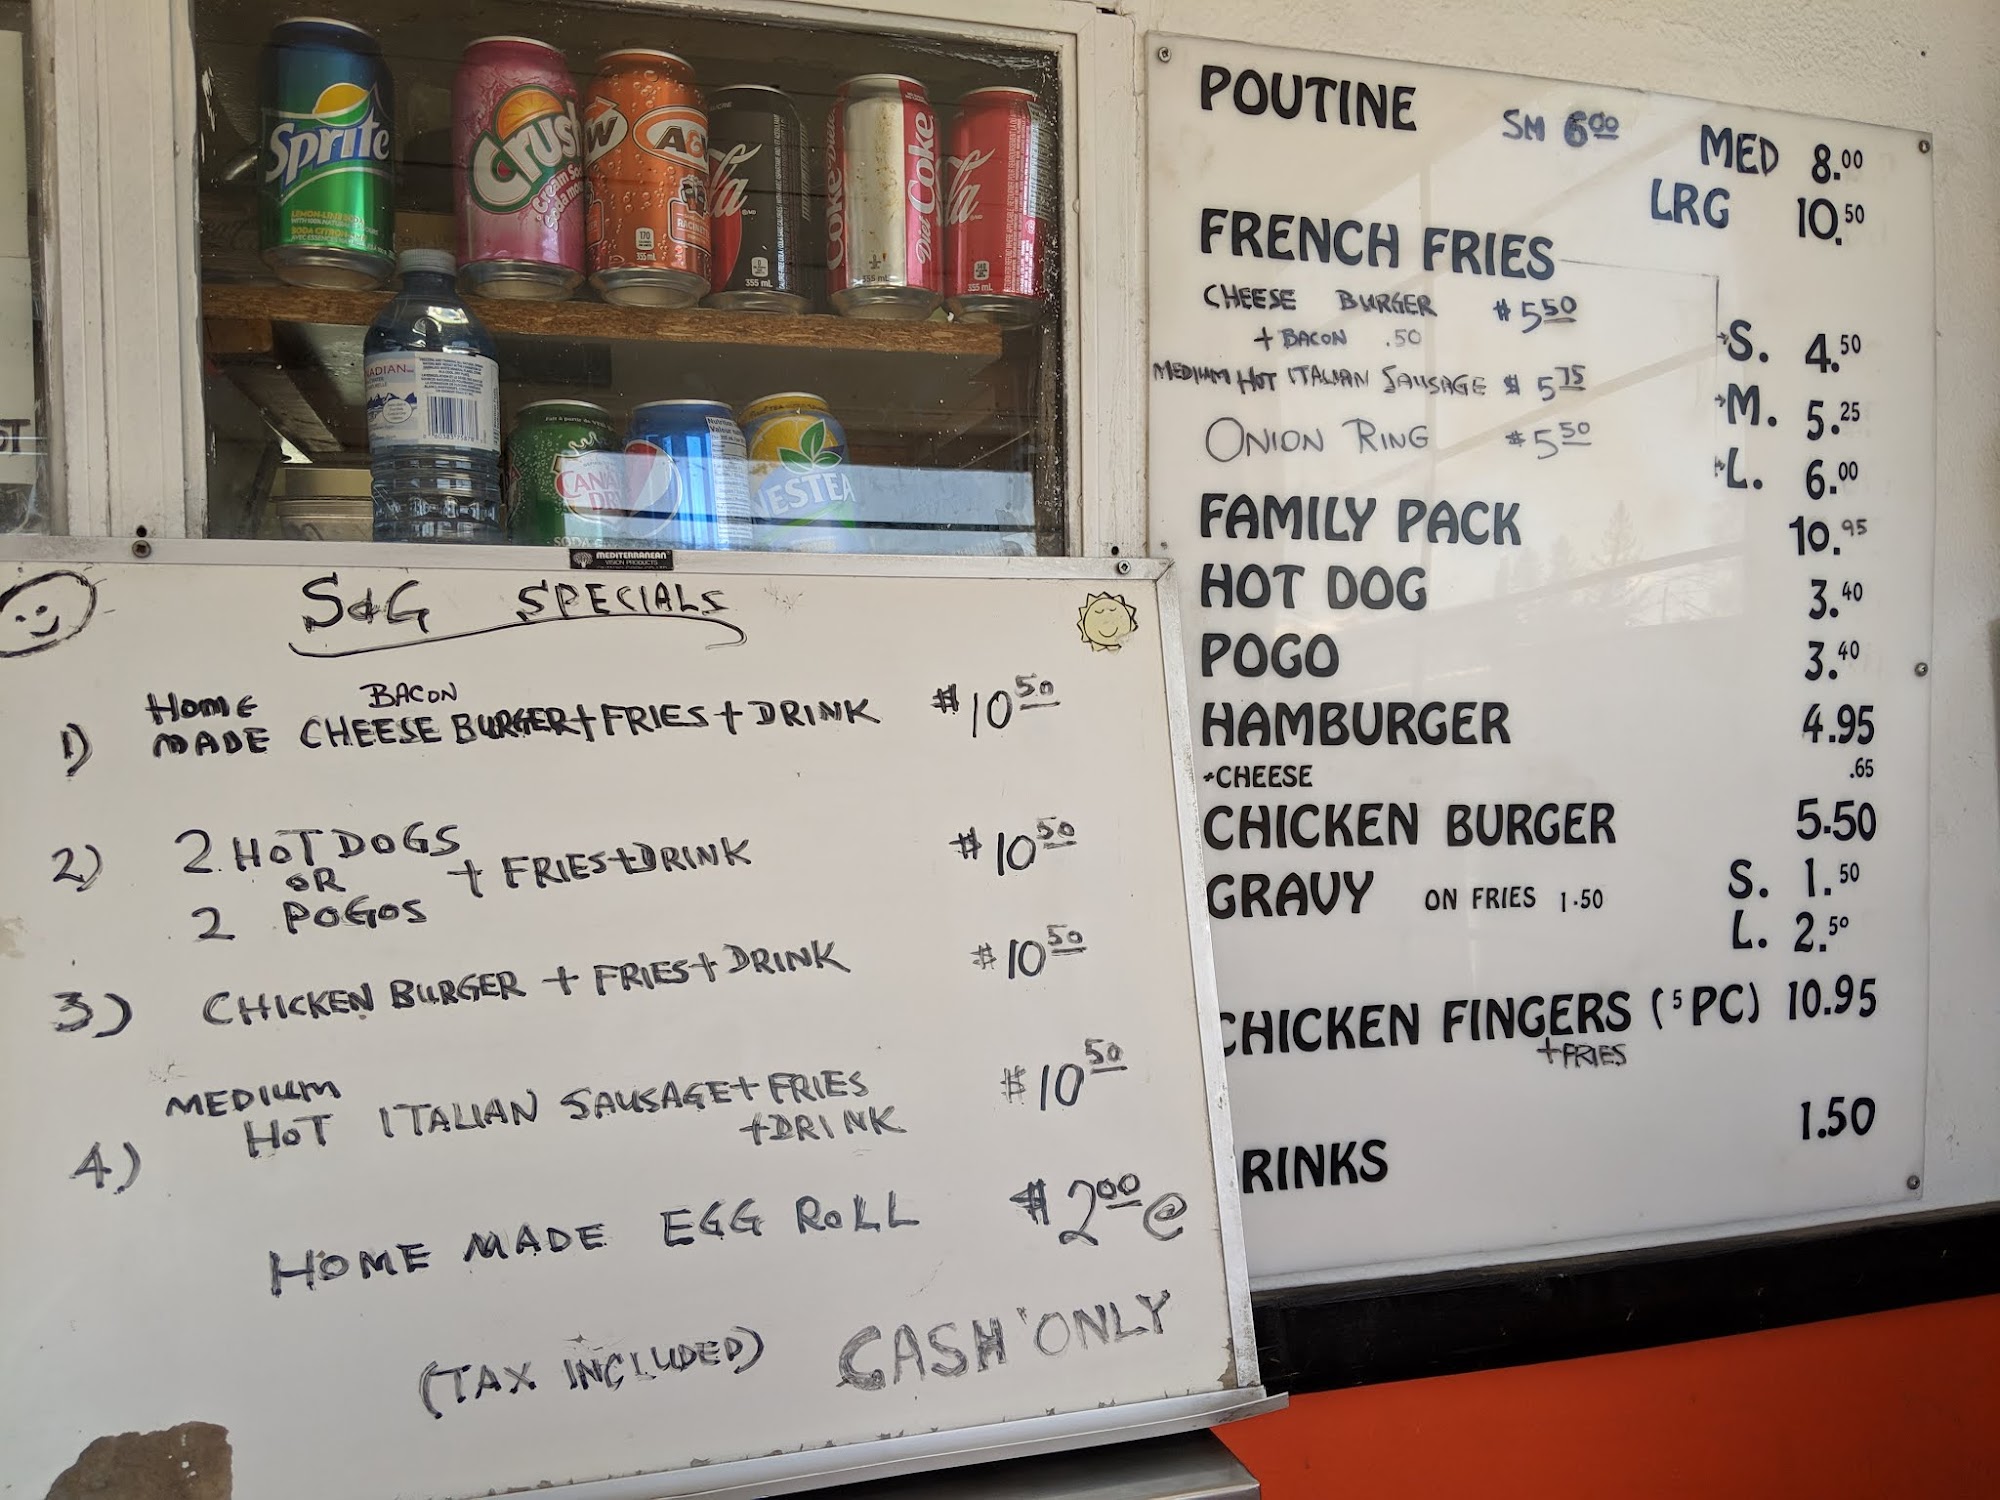 Sprite
LEMON-LIME
Crush
Cream Soda
A&W
355 mL
355 mL
355 mL
Coke
Diet Coke
355 mL
CANADA DRY
NESTEA
MEDITERRANEAN
VISION PRODUCTS
S&G SPECIALS
1) HOME MADE BACON CHEESE BURGER + FRIES + DRINK $10.50
2) 2 HOT DOGS
OR + FRIES + DRINK $10.50
2 POGOS
3) CHICKEN BURGER + FRIES + DRINK $10.50
4) MEDIUM HOT ITALIAN SAUSAGE + FRIES $10.50
+ DRINK
HOME MADE EGG ROLL $2.00 @
(TAX INCLUDED) CASH ONLY
POUTINE SM 6.00 MED 8.00
LRG 10.50
FRENCH FRIES
CHEESE BURGER $5.50
+ BACON .50
S. 4.50
MEDIUM HOT ITALIAN SAUSAGE $5.75
M. 5.25
ONION RING $5.50
L. 6.00
FAMILY PACK 10.95
HOT DOG 3.40
POGO 3.40
HAMBURGER 4.95
+CHEESE .65
CHICKEN BURGER 5.50
GRAVY ON FRIES 1.50 S. 1.50
L. 2.50
CHICKEN FINGERS (5 PC) 10.95
+FRIES
RINKS 1.50